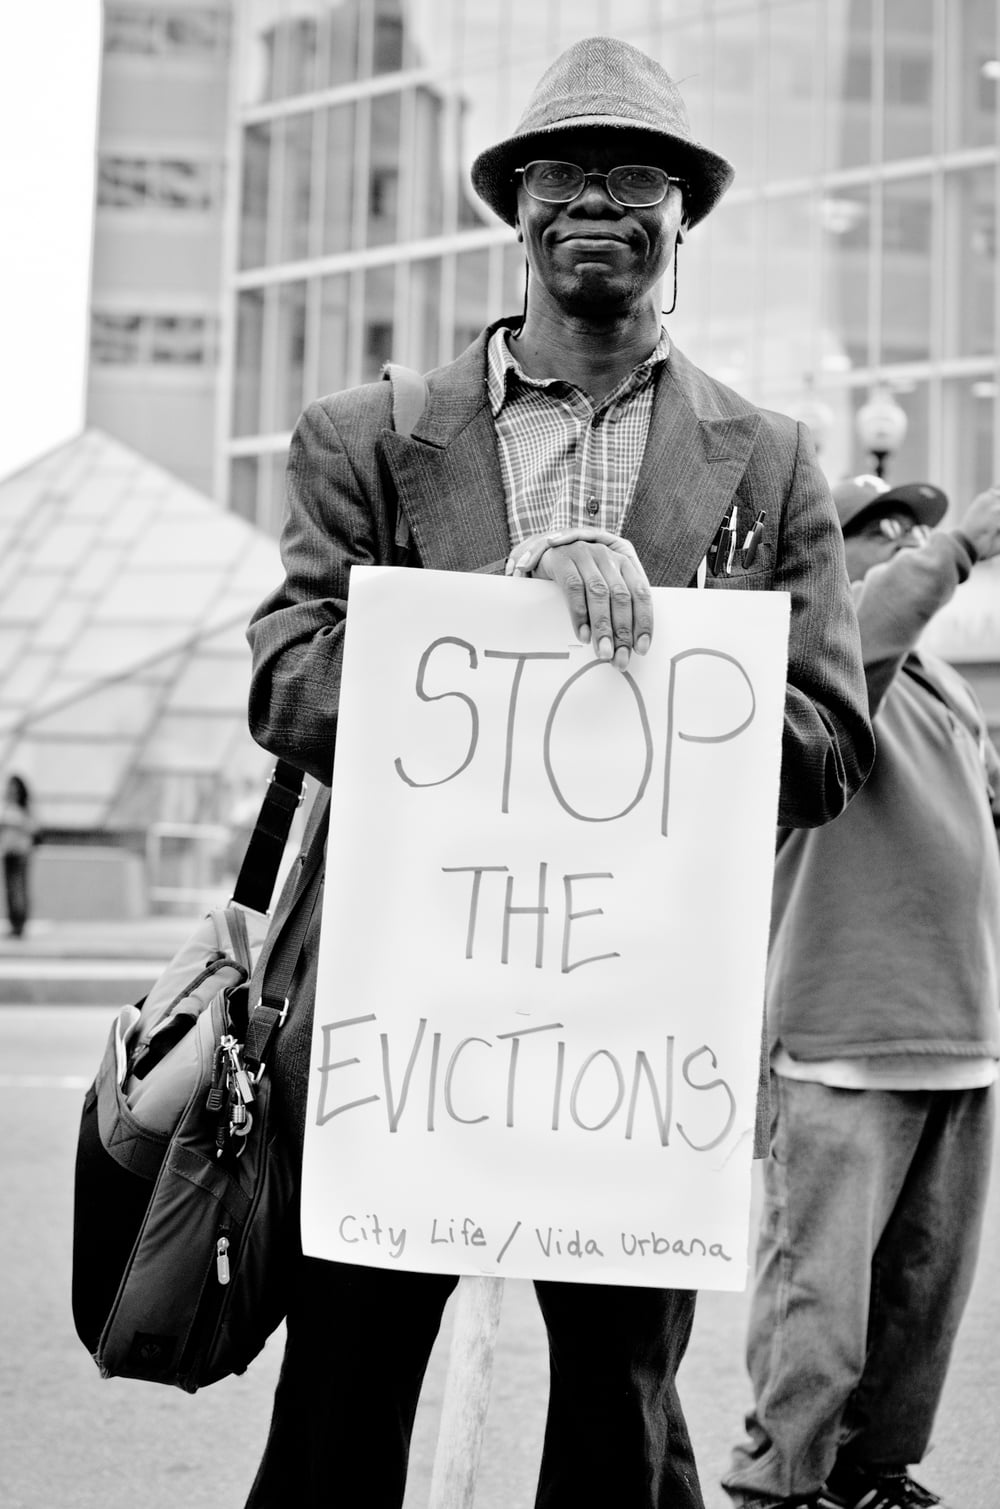 STOP
THE
EVICTIONS
City Life / Vida Urbana